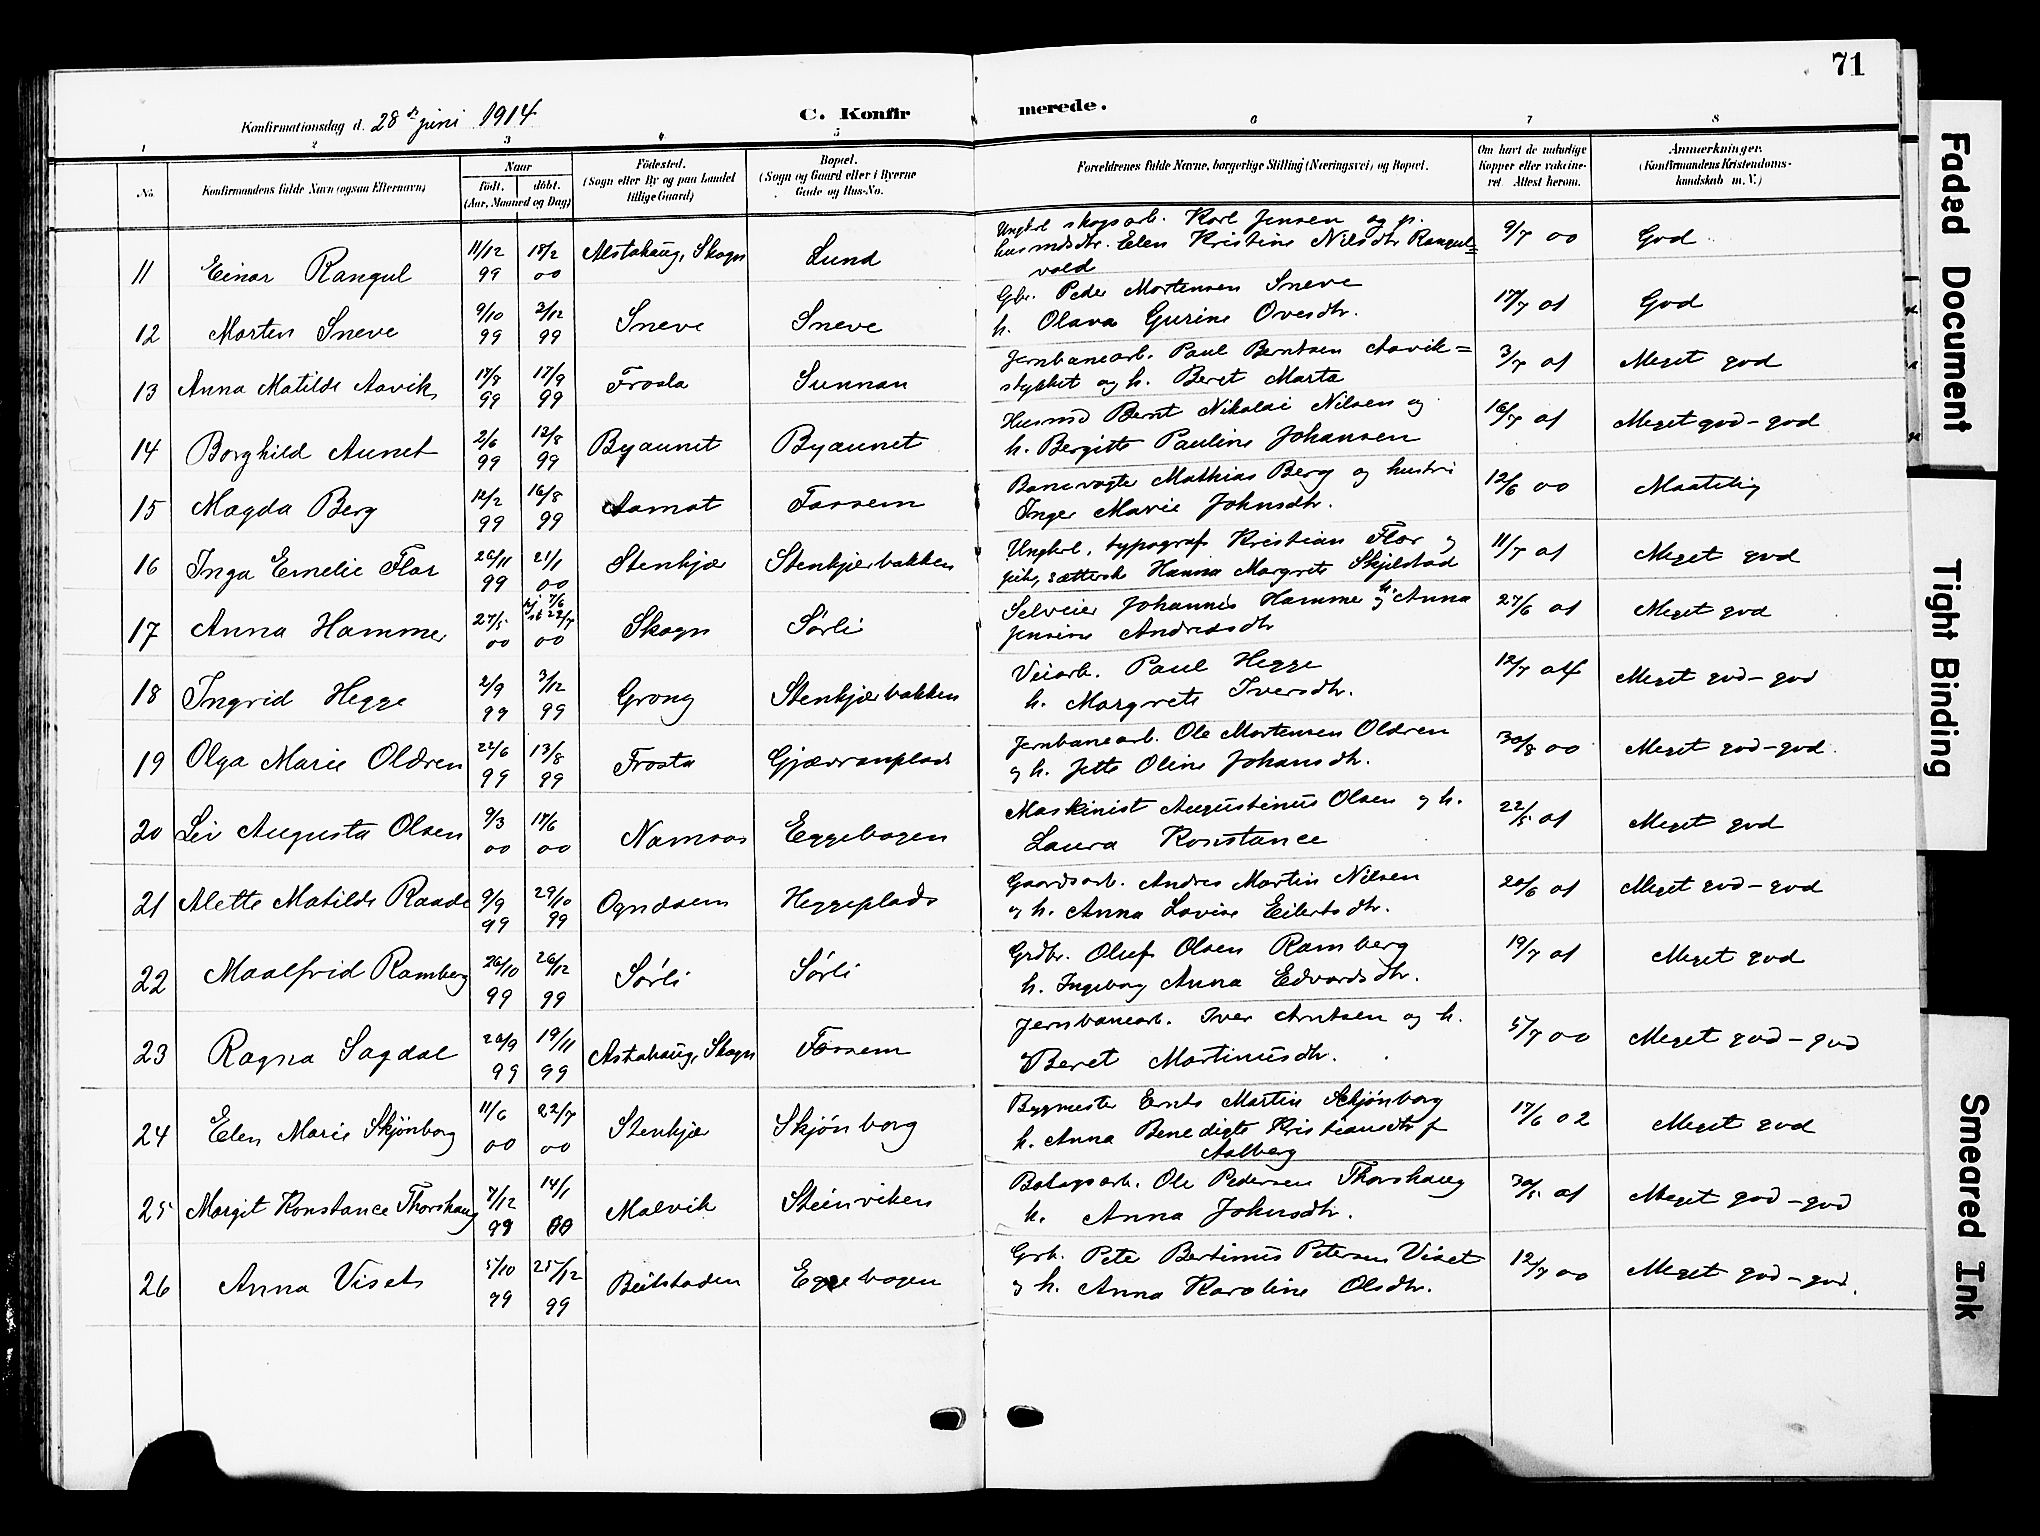 71
Konfirmationsdag d. 28de juni 1914 C. Konfirmerede.
1 2 3 4 5 6 7 8
No. Konfirmandens fulde Navn (ogsaa Efternavn) Naar født, døbt. (Aar, Maaned og Dag) Fødested. (Sogn eller By og paa Landet tillige Gaard) Bopæl. (Sogn og Gaard eller i Byerne Gade og Hus-No. Forældrenes fulde Navne, borgerlige Stilling (Næringsvei) og Bopæl. Om havt de naturlige Kopper eller vaccineret. Attest herom. Anmerkninger. (Konfirmandens Kristendomskundskab m. V.)
11 Einar Rangul 11/12 99 18/2 00 Alstahaug, Skogn Lund Ungkrl skogsarb. Karl Jensen og p.
husmdsdtr. Elen Kristine Nilsdtr Rangul=
vold 9/7 00 God
12 Morten Sneve 9/10 99 3/12 99 Sneve Sneve Gbr. Peder Mortensen Sneve
h. Olava Gurine Ovesdtr. 17/7 01 God
13 Anna Matilde Aavik 17/8 99 17/9 99 Frosta Sunnan Jernbanearb. Paul Berntsen Aavik=
stykket og h. Beret Marta 3/7 01 Meget god
14 Borghild Aunet 2/6 99 13/8 99 Byaunet Byaunet Husmd Bernt Nikolai Nilsen og
h. Bergitte Pauline Johansen 16/7 01 Meget god – god
15 Magda Berg 12/2 99 16/8 99 Aamot Fossem Banevogter Mathias Berg og hustru
Inger Marie Johnsdtr. 12/6 00 Maatelig
16 Inga Emelie Flor 26/11 99 21/1 00 Stenkjær Stenkjærbakken Ungkrl. typograf Kristian Flor og
pike, sætterske Hanna Margrete Skjelstad 11/7 01 Meget god
17 Anna Hamme 27/5 00 hj 7/6 st 22/7 00 Skogn Sørli Selveier Johannes Hamme og h. Anna
Jensine Andreasdtr 27/6 01 Meget god
18 Ingrid Hegge 2/9 99 3/12 99 Grong Stenkjærbakken Veiarb. Paul Hegge
h. Margrete Iversdtr. 12/7 01 Meget god – god
19 Olga Marie Oldren 22/6 99 13/8 99 Frosta Gjævranplads Jernbanearb. Ole Mortensen Oldren
og h. Jette Oline Johansdtr. 30/8 00 Meget god – god.
20 Augusta Olsen 9/3 00 17/6 00 Namsos Eggebogen Maskinist Augustinus Olsen og h.
Laura Konstance 22/5 01 Meget god
21 Alette Matilde Raade 9/9 99 29/10 99 Ogndalen Heggeplads Gaardsarb. Andres Martin Nilsen
og h. Anna Lovise Eilertsdtr. 20/6 01 Meget god – god
22 Maalfrid Ramberg 26/10 99 26/12 99 Sørli Sørli Grdbr. Oluf Olsen Ramberg
h. Ingeborg Anna Edvardsdtr. 19/7 01 Meget god
23 Ragna Sagdal 20/9 99 19/11 99 Alstahaug, Skogn Fossem Jernbanearb. Iver Arntsen og h.
Beret Martinusdtr. 5/7 00 Meget god – god
24 Elen Marie Skjønborg 11/6 00 22/7 00 Stenkjær Skjønborg Bygmester Ernts Martin Skjønborg
h. Anna Benedigte Kristiansdtr f
Aalberg 17/6 02 Meget god
25 Margit Konstance Thorshaug 7/12 99 14/1 00 Malvik Steinviken Ole Pedersen Thorshaug
h. Anna Johnsdtr. 30/5 01 Meget god – god
26 Anna Viset 5/10 99 25/12 99 Beitstaden Eggebogen Grb. Peter Bertinus Petersen Viset
og h. Anna Karoline Olsdtr. 12/7 00 Meget god – god.
Faded Document
Tight Binding
Smeared Ink